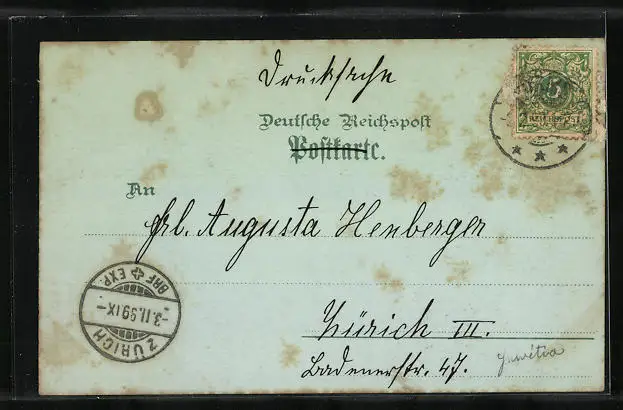 Drucksache
Deutsche Reichspost
Postkarte.
5
REICHSPOST
An
Frl. Augusta Henberger
Zürich III.
Badenerstr. 47.
BRF EXP.
-3.II.99.IX-
ZÜRICH